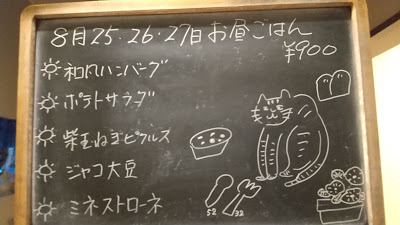 8月25.26.27日お昼ごはん
¥900
和風ハンバーグ
ポテトサラダ
紫玉ねぎピクルス
ジャコ大豆
ミネストローネ
52 32